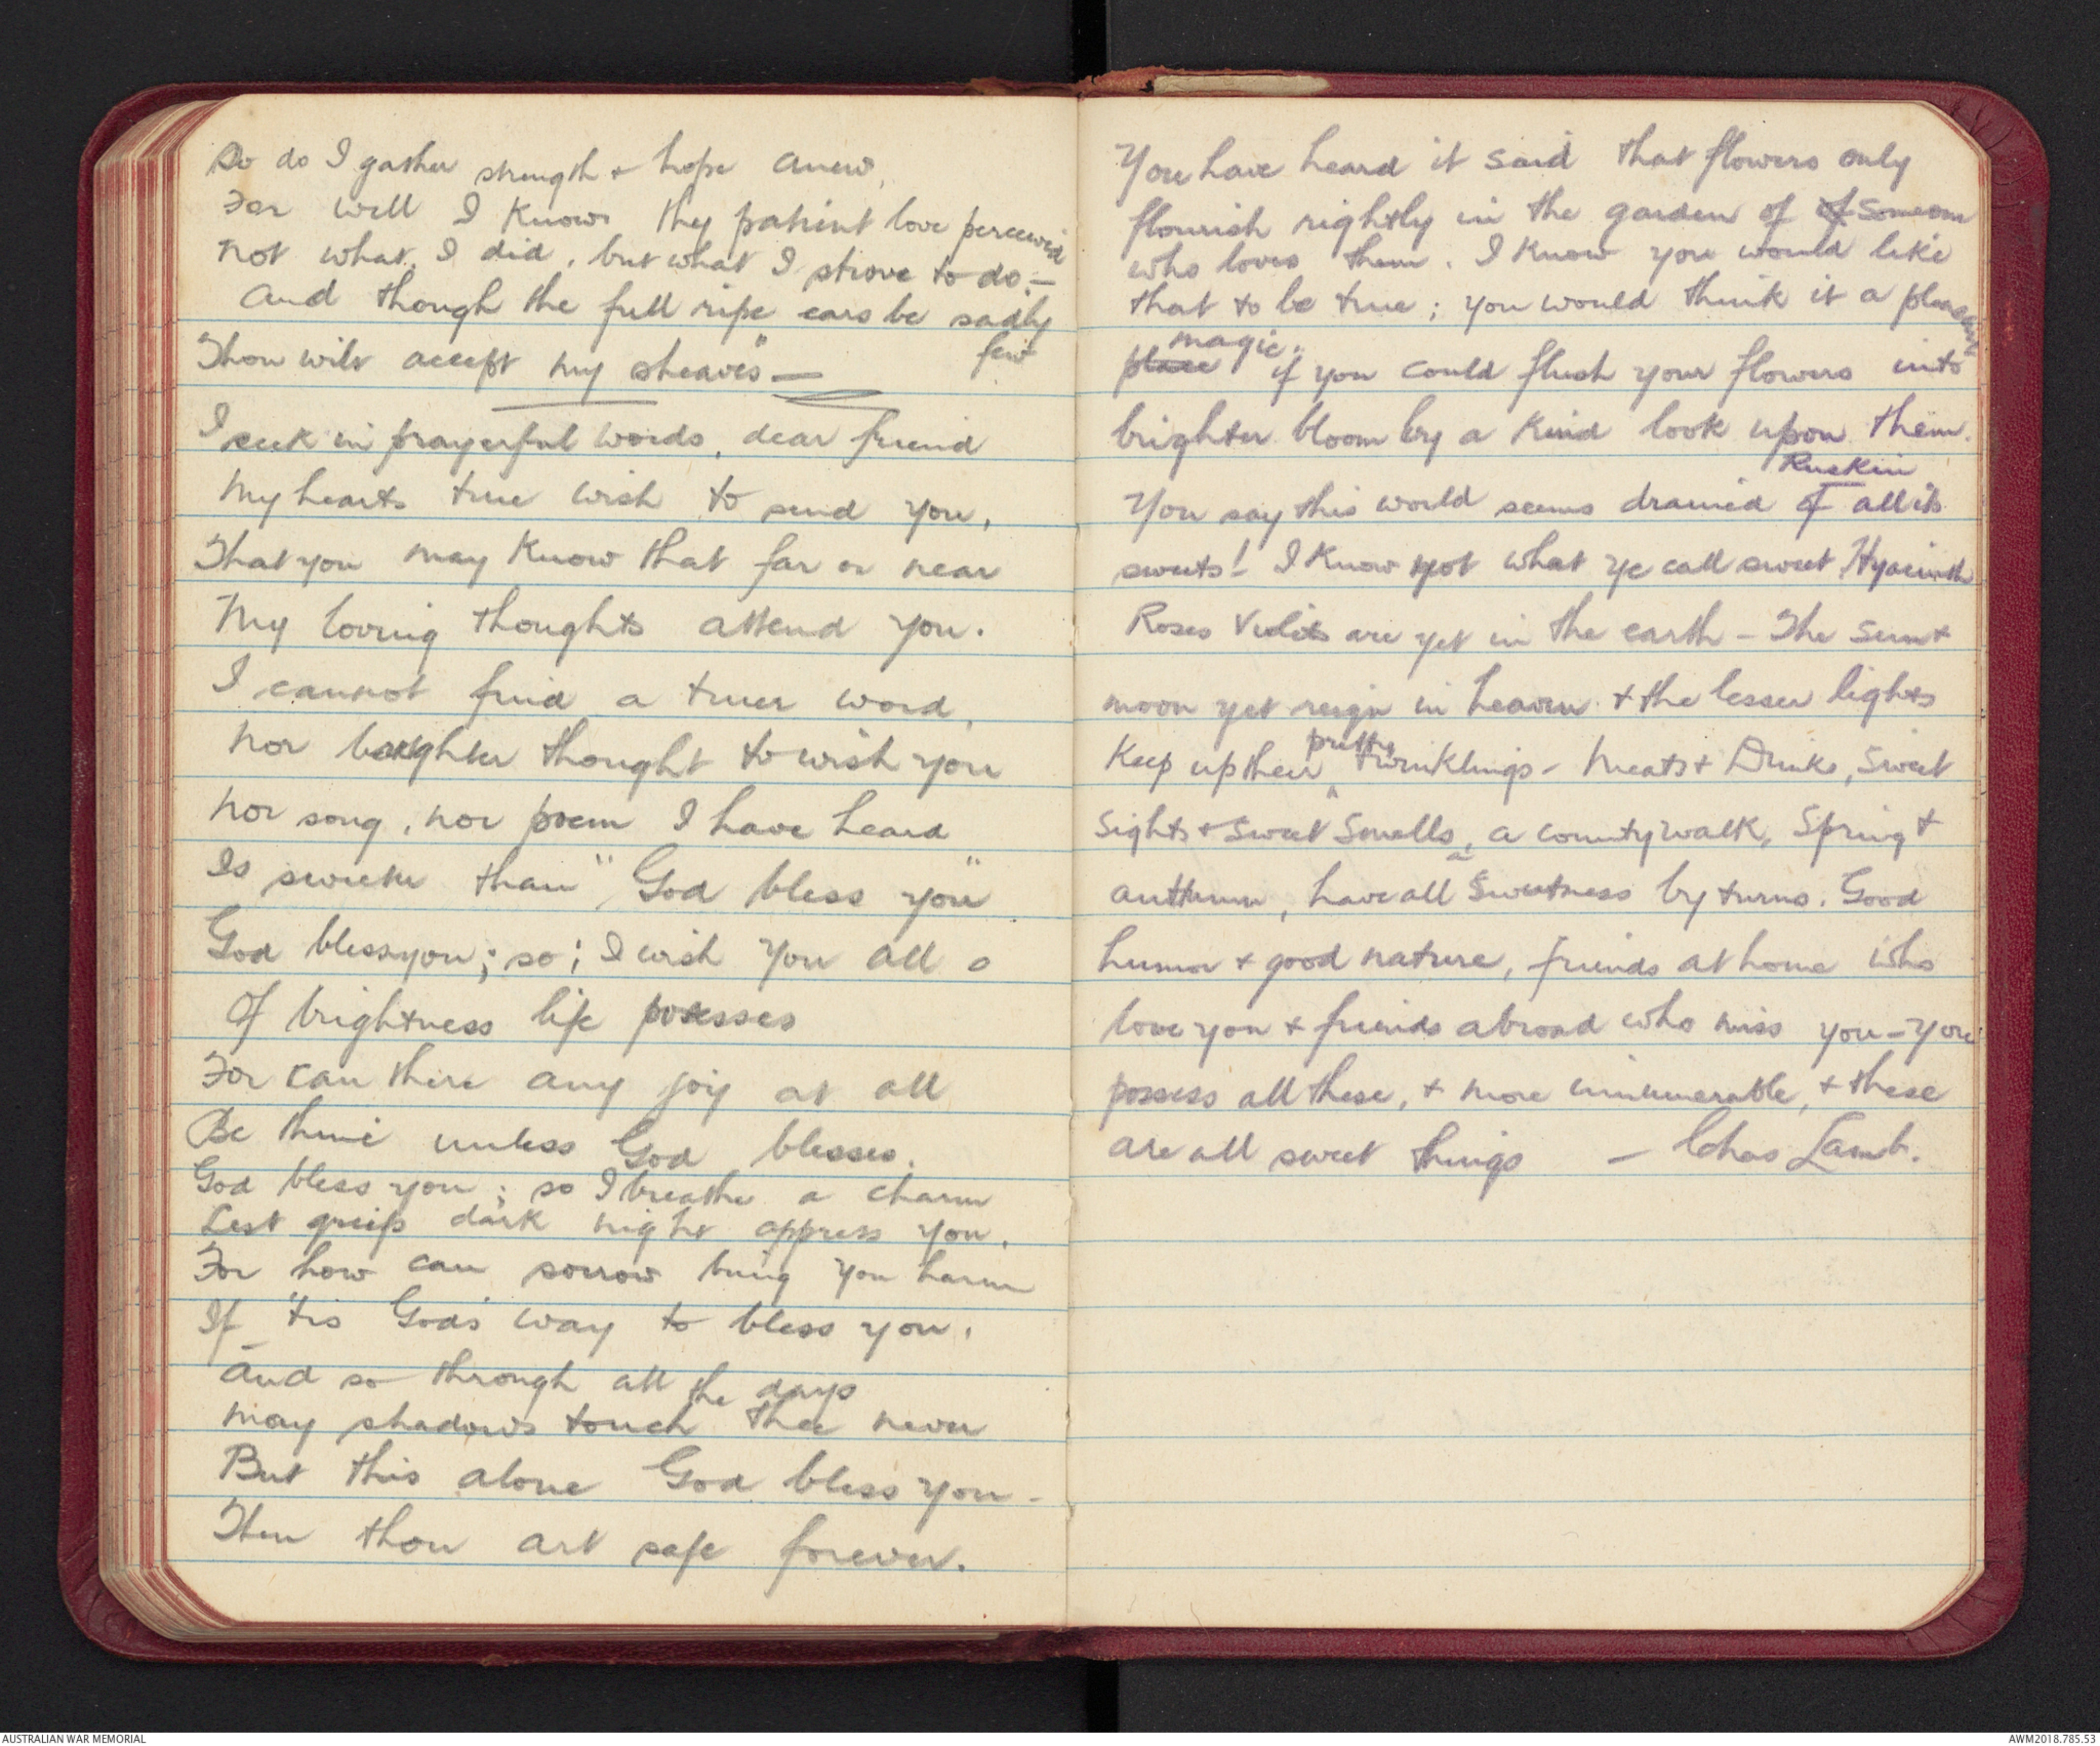 So do I gather strength & hope anew,
For well I know thy patient love perceived
Not what I did, but what I strove to do:-
And though the full ripe ears be sadly
few
Thou wilt accept my sheaves" —
I seek in prayerful words, dear friend
My hearts true wish to send you,
That you may know that far or near
My loving thoughts attend you.
I cannot find a truer word,
Nor brighter thought to wish you
Nor song, nor poem I have heard
Is sweeter than "God bless you"
God bless you; so; I wish you all
Of brightness life possesses
For can there any joy at all
Be thine unless God blesses.
God bless you; so I breathe a charm
Lest griefs dark night oppress you.
For how can sorrow bring you harm
If 'tis God's way to bless you.
And so through all the days
May shadows touch thee never
But this alone God bless you -
Then thou art safe forever.
You have heard it said that flowers only
flourish rightly in the garden of of someone
who loves them. I know you would like
that to be true; you would think it a pleasant
place magic. if you could flush your flowers into
brighter bloom by a kind look upon them.
Ruskin
You say this world seems drained of all its
sweets! I know not what ye call sweet, Hyacinth
Roses Violets are yet in the earth - The sun &
moon yet reign in heaven & the lesser lights
keep up their pretty twinklings - Meats & Drinks, sweet
sights & sweet smells, a county walk, Spring &
auttumn, have all a sweetness by turns. Good
humor & good nature, friends at home who
love you & friends abroad who miss you - you
possess all these, & more innumerable, & these
are all sweet things - Chas Lamb.
AUSTRALIAN WAR MEMORIAL
AWM2018.785.53